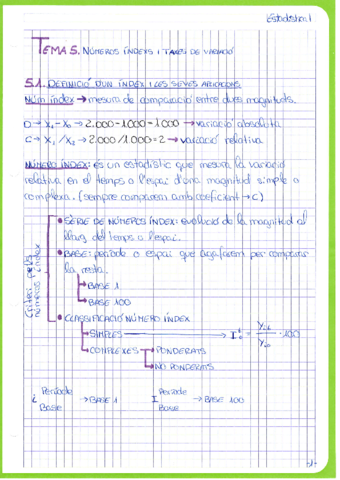 Estadística I
TEMA 5. NÚMEROS ÍNDEXS I TAXES DE VARIACIÓ
5.1. DEFINICIÓ D'UN ÍNDEX I LES SEVES APLICACIONS
Núm índex → mesura de comparació entre dues magnituds.
D → X₁ - X₀ → 2.000 - 1.000 = 1.000 → variació absoluta
C → X₁ / X₀ → 2.000 / 1.000 = 2 → variació relativa
NÚMERO ÍNDEX: és un estadístic que mesura la variació
relativa en el temps o l'espai d'una magnitud simple o
complexa. (sempre comparem amb coeficient → C)
Criteri pels números índex
• SÈRIE DE NÚMEROS ÍNDEX: evolució de la magnitud al
llarg del temps o l'espai.
• BASE: període o espai que agafarem per comparar
la resta.
↳ BASE 1
↳ BASE 100
• CLASSIFICACIÓ NÚMERO ÍNDEX
↳ SIMPLES → I₀ᵗ = Yᵢₜ / Yᵢ₀ · 100
↳ COMPLEXES → PONDERATS
↳ NO PONDERATS
i Període Base → BASE 1 I Període Base → BASE 100
-1-